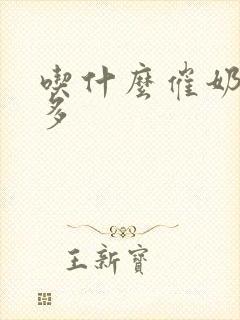 喫什麼催奶
多
王新寶